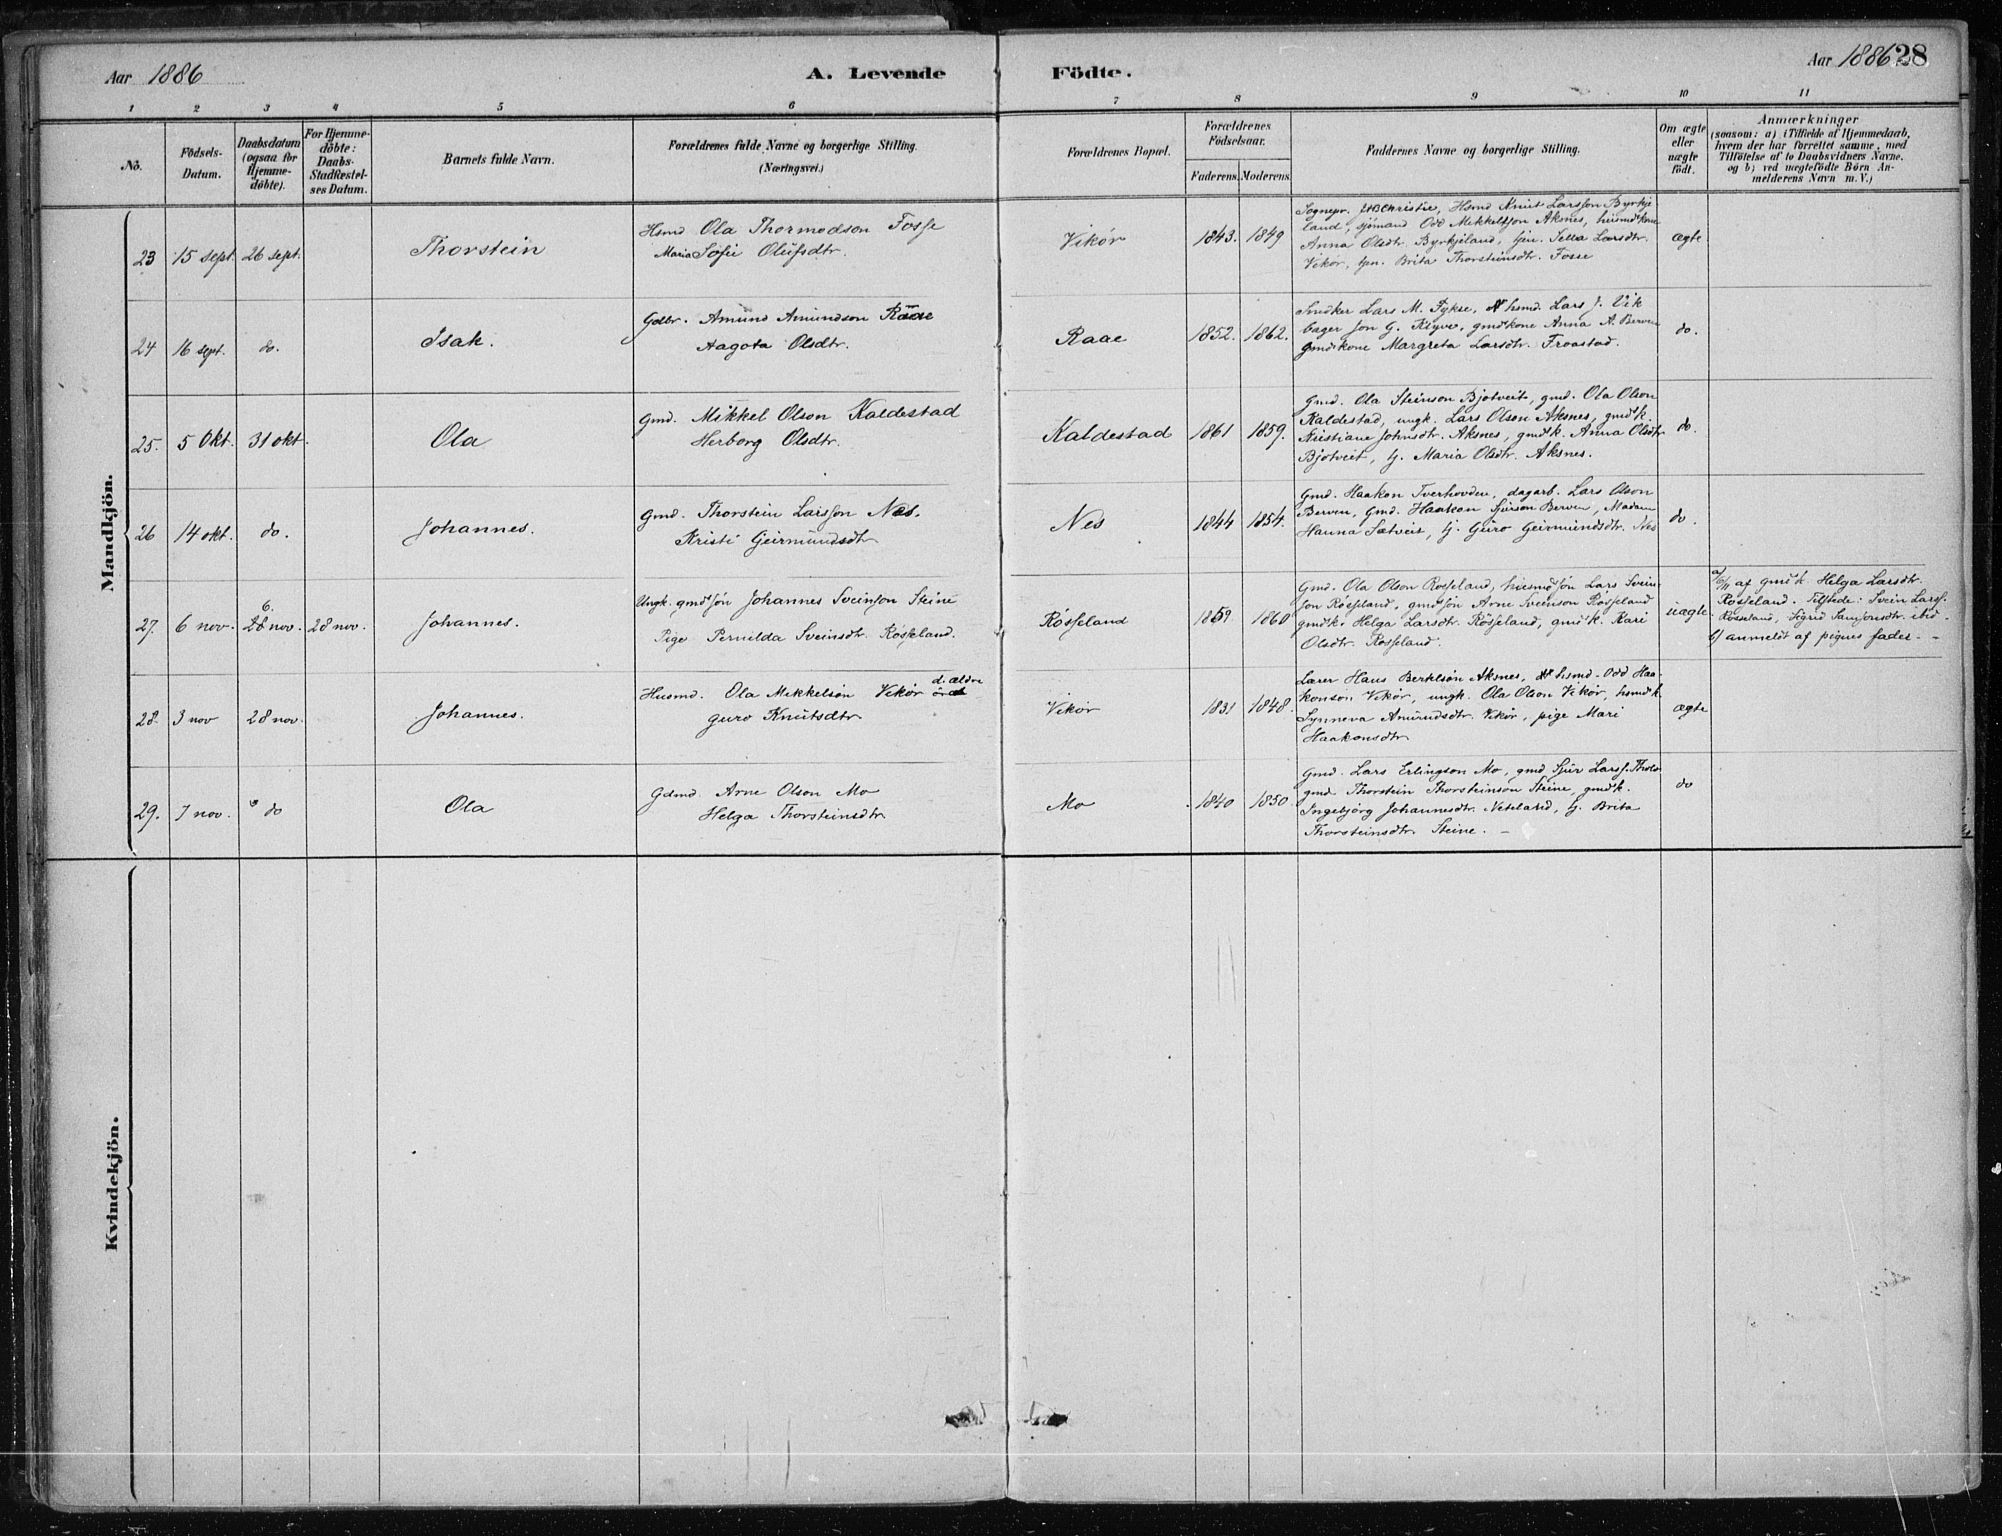 Aar 1886
A. Levende Födte.
Aar 1886 28
1 2 3 4 5 6 7 8 9 10 11
No.
Födsels-Datum.
Daabsdatum (ogsaa for Hjemmedöbte).
For Hjemmedöbte: Daabs-Stadfæstelses Datum.
Barnets fulde Navn.
Forældrenes fulde Navne og borgerlige Stilling. (Næringsvei.)
Forældrenes Bopæl.
Forældrenes Födselsaar.
Faderens. Moderens.
Faddernes Navne og borgerlige Stilling.
Om ægte eller uægte födt.
Anmærkninger
(saasom: a) i Tilfælde af Hjemmedaab, hvem der har forrettet samme, med Tilföielse af to Daabsvidners Navne, og b) ved uægtefödte Börn Anmelderens Navn m. V.)
Mandkjön.
23 15 sept. 26 sept. Thorstein
Hsmd Ola Thormodson Fosse
Maria Sofie Olufsdtr.
Vikør 1843. 1849
Sognepr. Christie, Hsmd Knut Larsson Byrkje
land, sjømand Odd Mikkelsson Aksnes, husmdkone
Anna Olsdtr. Byrkjeland, tjen. Sella Larsdtr.
Vikør, tjen. Brita Thorsteinsdtr. Fosse
ægte
24 16 sept. do. Isak.
Gdbr. Amund Amundson Raae
Aagota Olsdtr.
Raae 1852. 1862.
Snidker Lars M. Fykse, hsmd. Lars J. Vik
bager Jon G. Klyve, gmdkone Anna A. Berven
gmdkone Margreta Larsdtr. Froastad.
do.
25. 5 Okt. 31 okt. Ola
Gmd. Mikkel Olson Kaldestad
Herborg Olsdtr.
Kaldestad 1861 1859.
Gmd. Ola Steinson Bjotveit, gmd. Ola Olson
Kaldestad, ungk. Lars Olson Aksnes, gmdk.
Kristiane Johnsdtr. Aksnes, gmdk. Anna Olsdtr
Bjotveit, tj. Maria Olsdtr. Aksnes.
do.
26 14 okt. do. Johannes.
Gmd. Thorstein Larsson Nes.
Kristi Geirmundsdtr
Nes 1844 1854.
Gmd. Haakon Tverhovden, dagarb. Lars Olson
Berven, Gmd. Haakon Sjurson Berven, Madam
Hanna Sætveit, tj. Guro Geirmundsdtr. Nes
do.
27. 6 nov. 6. 28 nov. 28 nov. Johannes.
Ungk. gmdsøn Johannes Sveinson Steine
Pige Pernilda Sveinsdtr. Røsseland.
Røsseland 1859 1860
Gmd. Ola Olson Rosseland, husmdsøn Lars Svein
son Røsseland, gmdsøn Arne Sveinson Røsseland
gmdk. Helga Larsdtr. Røsseland, gmdk. Kari
Olsdtr. Røsseland.
uægte
a/ 6/11 af gmdk. Helga Larsdtr.
Røsseland. Tilstede: Svein Larss.
Røsseland, Sigrid Samsonsdtr. ibid.
b/ anmeldt af pigens fader.
28. 3 nov 28 nov. Johannes.
Husmd. Ola Mikkelson Vikør d. ældre
Guro Knutsdtr
Vikør 1831 1848.
Lærer Hans Berklson Aksnes, hsmd. Odd Haa-
konson Vikør, ungk. Ola Olson Vikør, hsmdk.
Synneva Amundsdtr. Vikør, pige Mari
Haakonsdtr
ægte
29. 7 nov. do Ola
Gdmd. Arne Olson Mo
Helga Thorsteinsdtr
Mo 1840 1850.
Gmd. Lars Erlingson Mo, gmd Sjur Larss.
gmd. Thorstein Thorsteinson Steine, gmdk.
Ingebjørg Johannesdtr. Neteland, tj. Brita
Thorsteinsdtr Steine.
do
Kvindekjön.